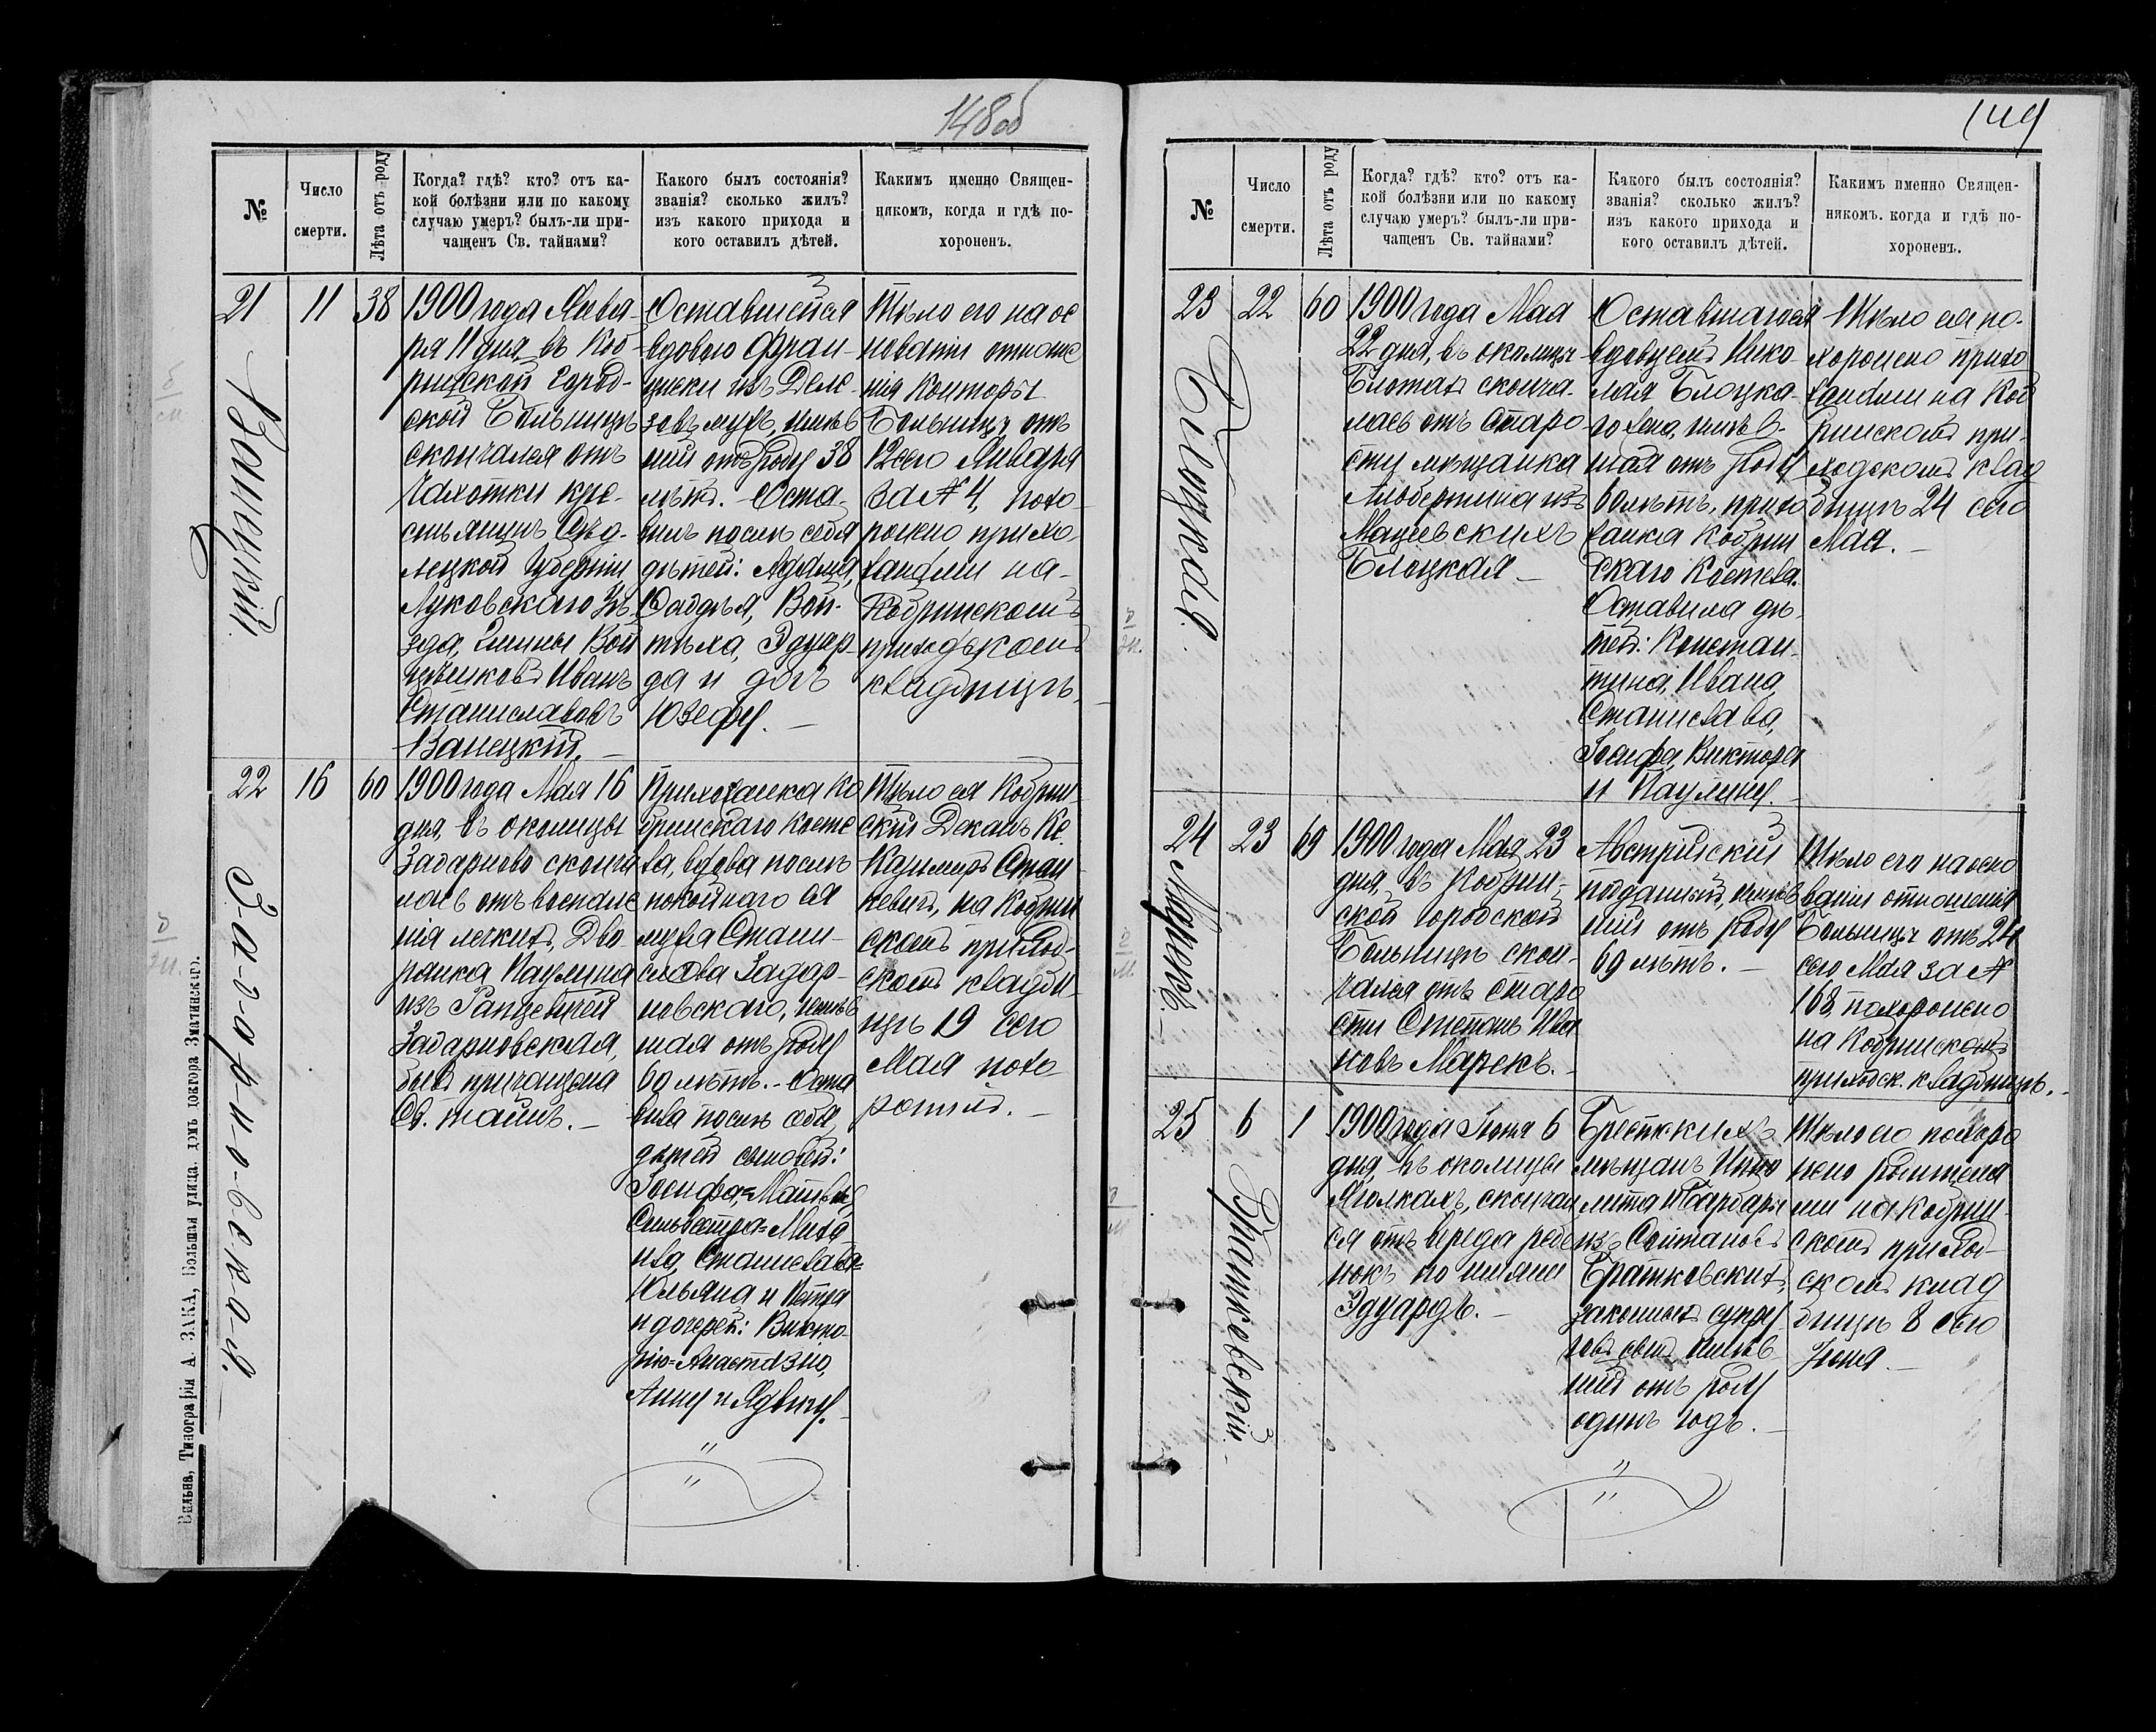 148 об
№
Число
смерти.
Лѣта отъ роду
Когда? гдѣ? кто? отъ ка-
кой болѣзни или по какому
случаю умеръ? былъ-ли при-
чащенъ Св. тайнами?
Какого былъ состоянія?
званія? сколько жилъ?
изъ какого прихода и
кого оставилъ дѣтей.
Какимъ именно Священ-
никомъ, когда и гдѣ по-
хороненъ.
21
11
38
Ванецкій
1900 года Янва-
ря 11 дня, въ Коб-
ринской город-
ской Больницѣ
скончался отъ
чахотки кре-
стьянинъ Сѣд-
лецкой Губерніи
Луковскаго Уѣ-
зда, Гмины Вой
Иванъ
Станиславовъ
Ванецкій. —
Оставшейся
вдовою Фран-
цишки изъ
мужъ, имѣв
шій отъ роду 38
лѣтъ. - Оста-
вилъ послѣ себя
дѣтей: Адама,
Фаддѣя, Вой-
тѣха, Эдуар-
да и дочь
Юзефу. —
Тѣло его на ос
нованіи отноше
нія Конторы
Больницы отъ
12 сего Января
за № 4, похо-
ронено прихо-
жанами на-
Кобринскомъ
приходскомъ
кладбищѣ. —
22
16
60
Задарновская.
1900 года Мая 16
дня, въ околицы
Задарново сконча
лась отъ воспале
нія легкихъ, Дво-
рянка Паулина
изъ Ранцевичей
Задарновская,
бывъ причащена
Св. тайнъ. —
Прихожанка Ко
бринскаго косте
ла, вдова послѣ
покойнаго ея
мужа Стани-
слава Задар-
новскаго, имѣв
шая отъ роду
60 лѣтъ. - Оста
вила послѣ себя,
дѣтей сыновей:
Іосифа=Матвѣя,
Сильвестра=Миха
ила, Станислава=
Юльяна и Петра
и дочерей: Викто-
рію=Анастазію,
Анну и Ядвигу. —
Тѣло ея Кобрин-
скій Деканъ Кс.
Казимиръ Стан
кевичъ, на Кобрин
скомъ приход-
скомъ кладби-
щѣ 19 сего
Мая похо
ронилъ. —
Вильна, Типографія А. ЗАКА, Большая улица, домъ доктора Змачинскаго.
149
№
Число
смерти.
Лѣта отъ роду
Когда? гдѣ? кто? отъ ка-
кой болѣзни или по какому
случаю умеръ? былъ-ли при-
чащенъ Св. тайнами?
Какого былъ состоянія?
званія? сколько жилъ?
изъ какого прихода и
кого оставилъ дѣтей.
Какимъ именно Священ-
никомъ. когда и гдѣ по-
хороненъ.
23
22
60
Блоцкая.
1900 года Мая
22 дня, въ околицы
Блотахъ сконча-
лась отъ старо
сти мѣщанка
Альбертина изъ
Мацеевскихъ
Блоцкая —
Оставшагося
вдовцемъ Нико-
лая Блоцка-
го жена, имѣв-
шая отъ роду
60 лѣтъ, прихо
жанка Кобрин
скаго Костела.
Оставила дѣ-
тей: Констан-
тина, Ивана,
Станислава,
Іосифа, Виктора
и Паулину. —
Тѣло ея по-
хоронено прихо
жанами на Коб
ринскомъ при-
ходскомъ клад
бищѣ 24 сего
Мая. —
24
23
69
Марекъ. —
1900 года Мая 23
дня, въ Кобрин-
ской городской
Больницѣ скон-
чался отъ старо
сти Степанъ Ива
новъ Марекъ. —
Австрійскій
подданный, имѣв
шій отъ роду
69 лѣтъ. —
Тѣло его на осно
ваніи отношенія
Больницы отъ 24
сего Мая за №
168, похоронено
на Кобринскомъ
приходск. кладбищѣ. —
25
6
1
Братковскій. —
1900 года Іюня 6
дня, въ околицы
Яголкахъ, скончал
ся отъ вереда ребе
нокъ по имени
Эдуардъ. —
Брестскихъ
мѣщанъ Иппо
лита и Варвары
изъ
Братковскихъ,
законныхъ супру
говъ сынъ имѣв-
шій отъ роду
одинъ годъ. —
Тѣло его похоро
нено родителя
ми на Кобрин-
скомъ приход-
скомъ клад
бищѣ 8 сего
Іюня. —